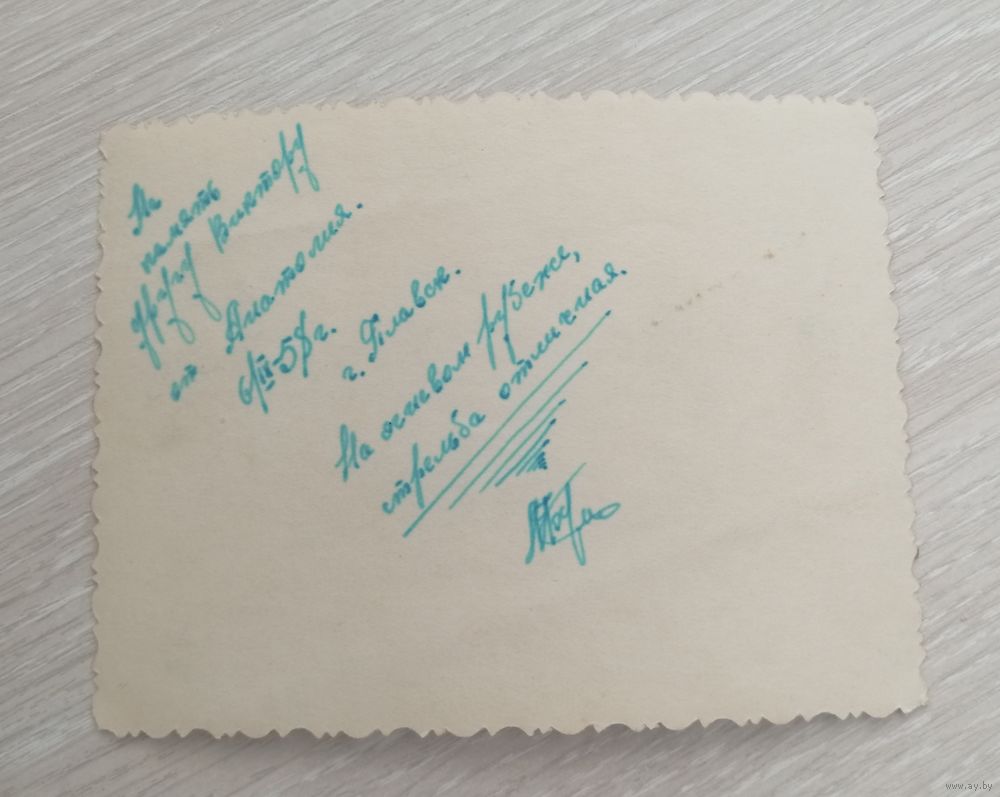 На
память
другу Виктору
от Анатолия.
6/III-58г.
г. Плавск.
На огневом рубеже,
стрельба отличная.
www.ay.by